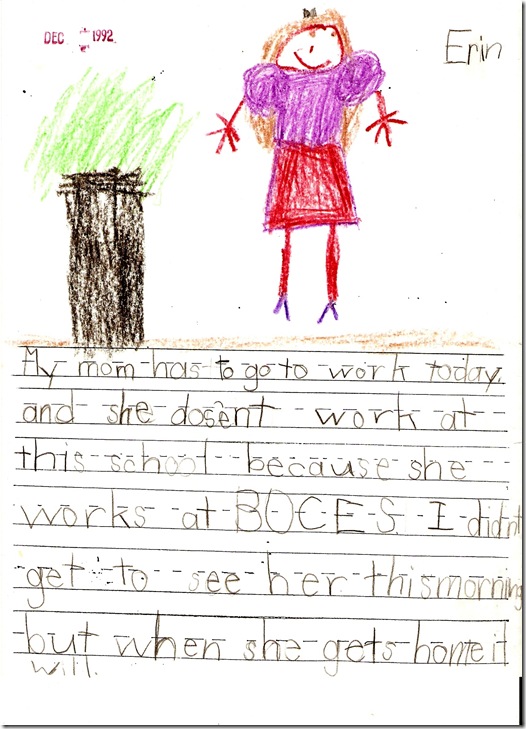 DEC 1992
Erin
My mom has to go to work today.
and she dosent work at
this school because she
works at BOCES. I didnt
get to see her this morning
but when she gets home it
will.